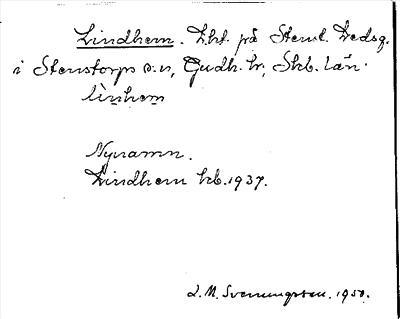 Lindhem. Lht. på Steml. Dedsg.
i Stenstorps s:n, Gudh. hd, Skb. län.
lìnhem
Nynamn.
Lindhem kb. 1937.
S. M. Svenungsson. 1950.